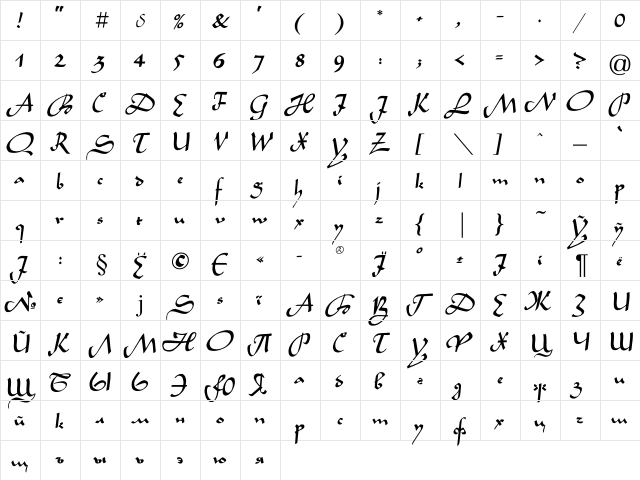 ! " # $ % & ' ( ) * + , - . / 0
1 2 3 4 5 6 7 8 9 : ; < = > ? @
A B C D E F G H I J K L M N O P
Q R S T U V W X Y Z [ \ ] ^ _ `
a b c d e f g h i j k l m n o p
q r s t u v w x y z { | } ~ Ў ў
J : § Ё © Є « - ® Ї ° ± І і ¶ ё
№ є » j Ѕ ѕ ї А Б В Г Д Е Ж З И
Й К Л М Н О П Р С Т У Ф Х Ц Ч Ш
Щ Ъ Ы Ь Э Ю Я а б в г д е ж з и
й к л м н о п р с т у ф х ц ч ш
щ ъ ы ь э ю я